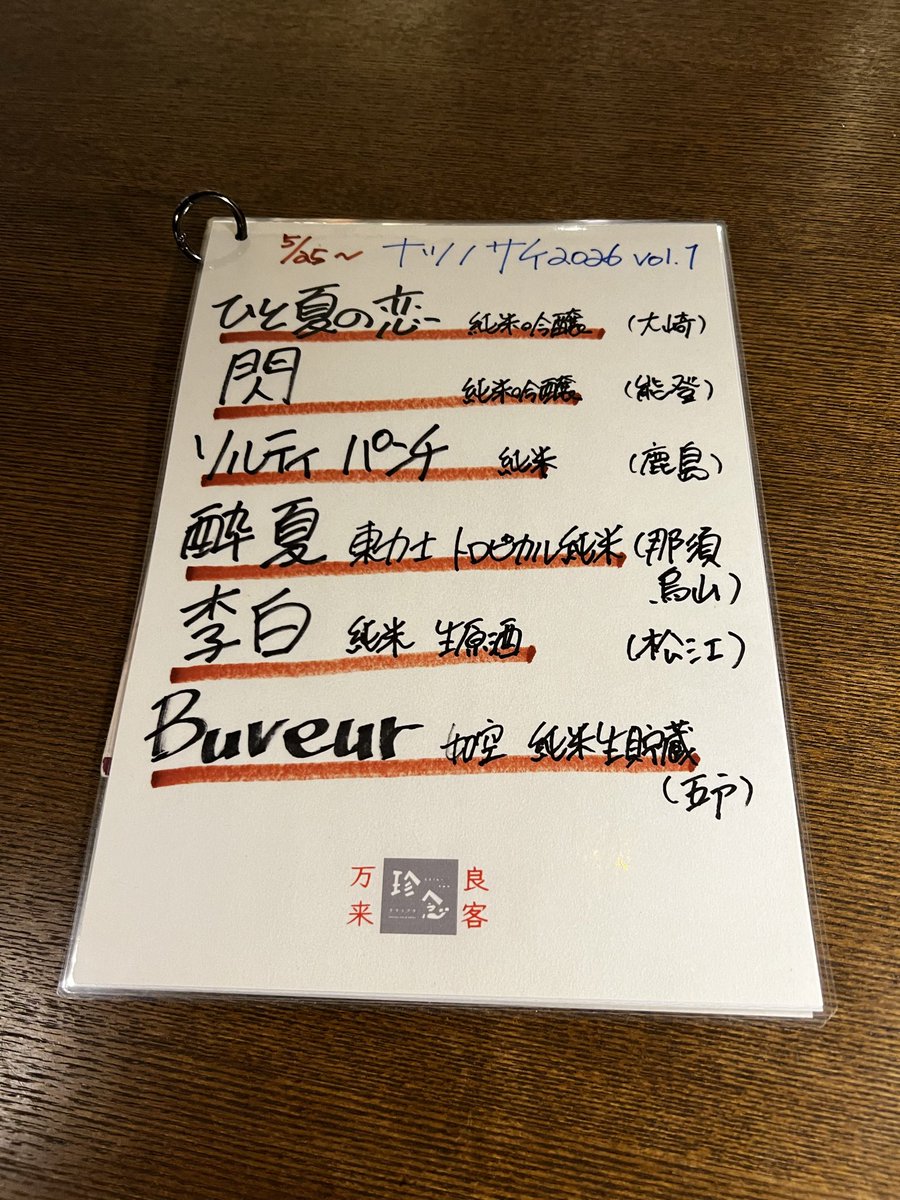 5/25〜 ナツノサケ2026 vol.1
ひと夏の恋 純米吟醸 (大崎)
閃 純米吟醸 (能登)
ソルティ パンチ 純米 (鹿島)
酔夏 東力士 トロピカル純米 (那須
烏山)
李白 純米 生原酒 (松江)
Buveur 如空 純米生貯蔵
(五戸)
万来 珍念 良客